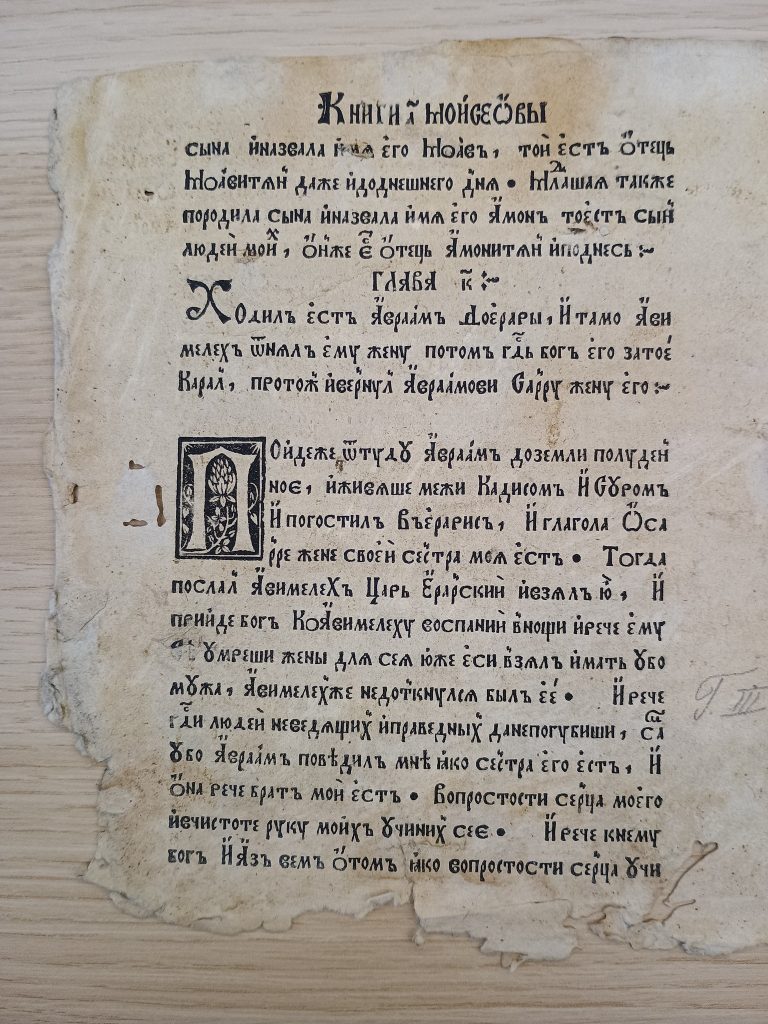 Книги а҃ Мойсеѡвы
сына йназвала ймя его Моавъ, той естъ ѻтець
Моавитян даже йдоднешнего дня • Млашая также
породила сына йназвала ймя его Амонъ тоестъ сын
людей мойх, ѻнже ес ѻтець Амонитян йподнесь :~
ГЛАВА к҃ :~
Ходилъ естъ Авраамъ Доерары, И тамо Ави
мелехъ ѿнялъ ему жену потомъ гдь богъ его затое
Карал, протож йвернул Авраамови Сарру жену его :~
Пойдеже ѿтуду Авраамъ доземли полуден
ное, йживяше межи Кадисом И Суромъ
И погостилъ Въерарисъ, И глагола Ѡса
рре жене своей сестра моя естъ • Тогда
послал Авимелехъ Царь Ерарский йвзялъ ю, И
прийде богъ КоАвимелеху воспаний вноши йрече ему
умреши жены для сея юже еси взялъ ймать убо
мужа, Авимелехже недоткнулся былъ ее • И рече
гди людей неведящих йправедных данепогубиши, са
убо Авраамъ повѣдилъ мнѣ ꙗко сестра его естъ, И
ѻна рече братъ мой естъ • Вопростости серца моего
йвчистоте руку мойхъ учиних сее • И рече кнему
богъ И Азъ вемъ ѻтомъ ꙗко вопростости серца учи
Г III